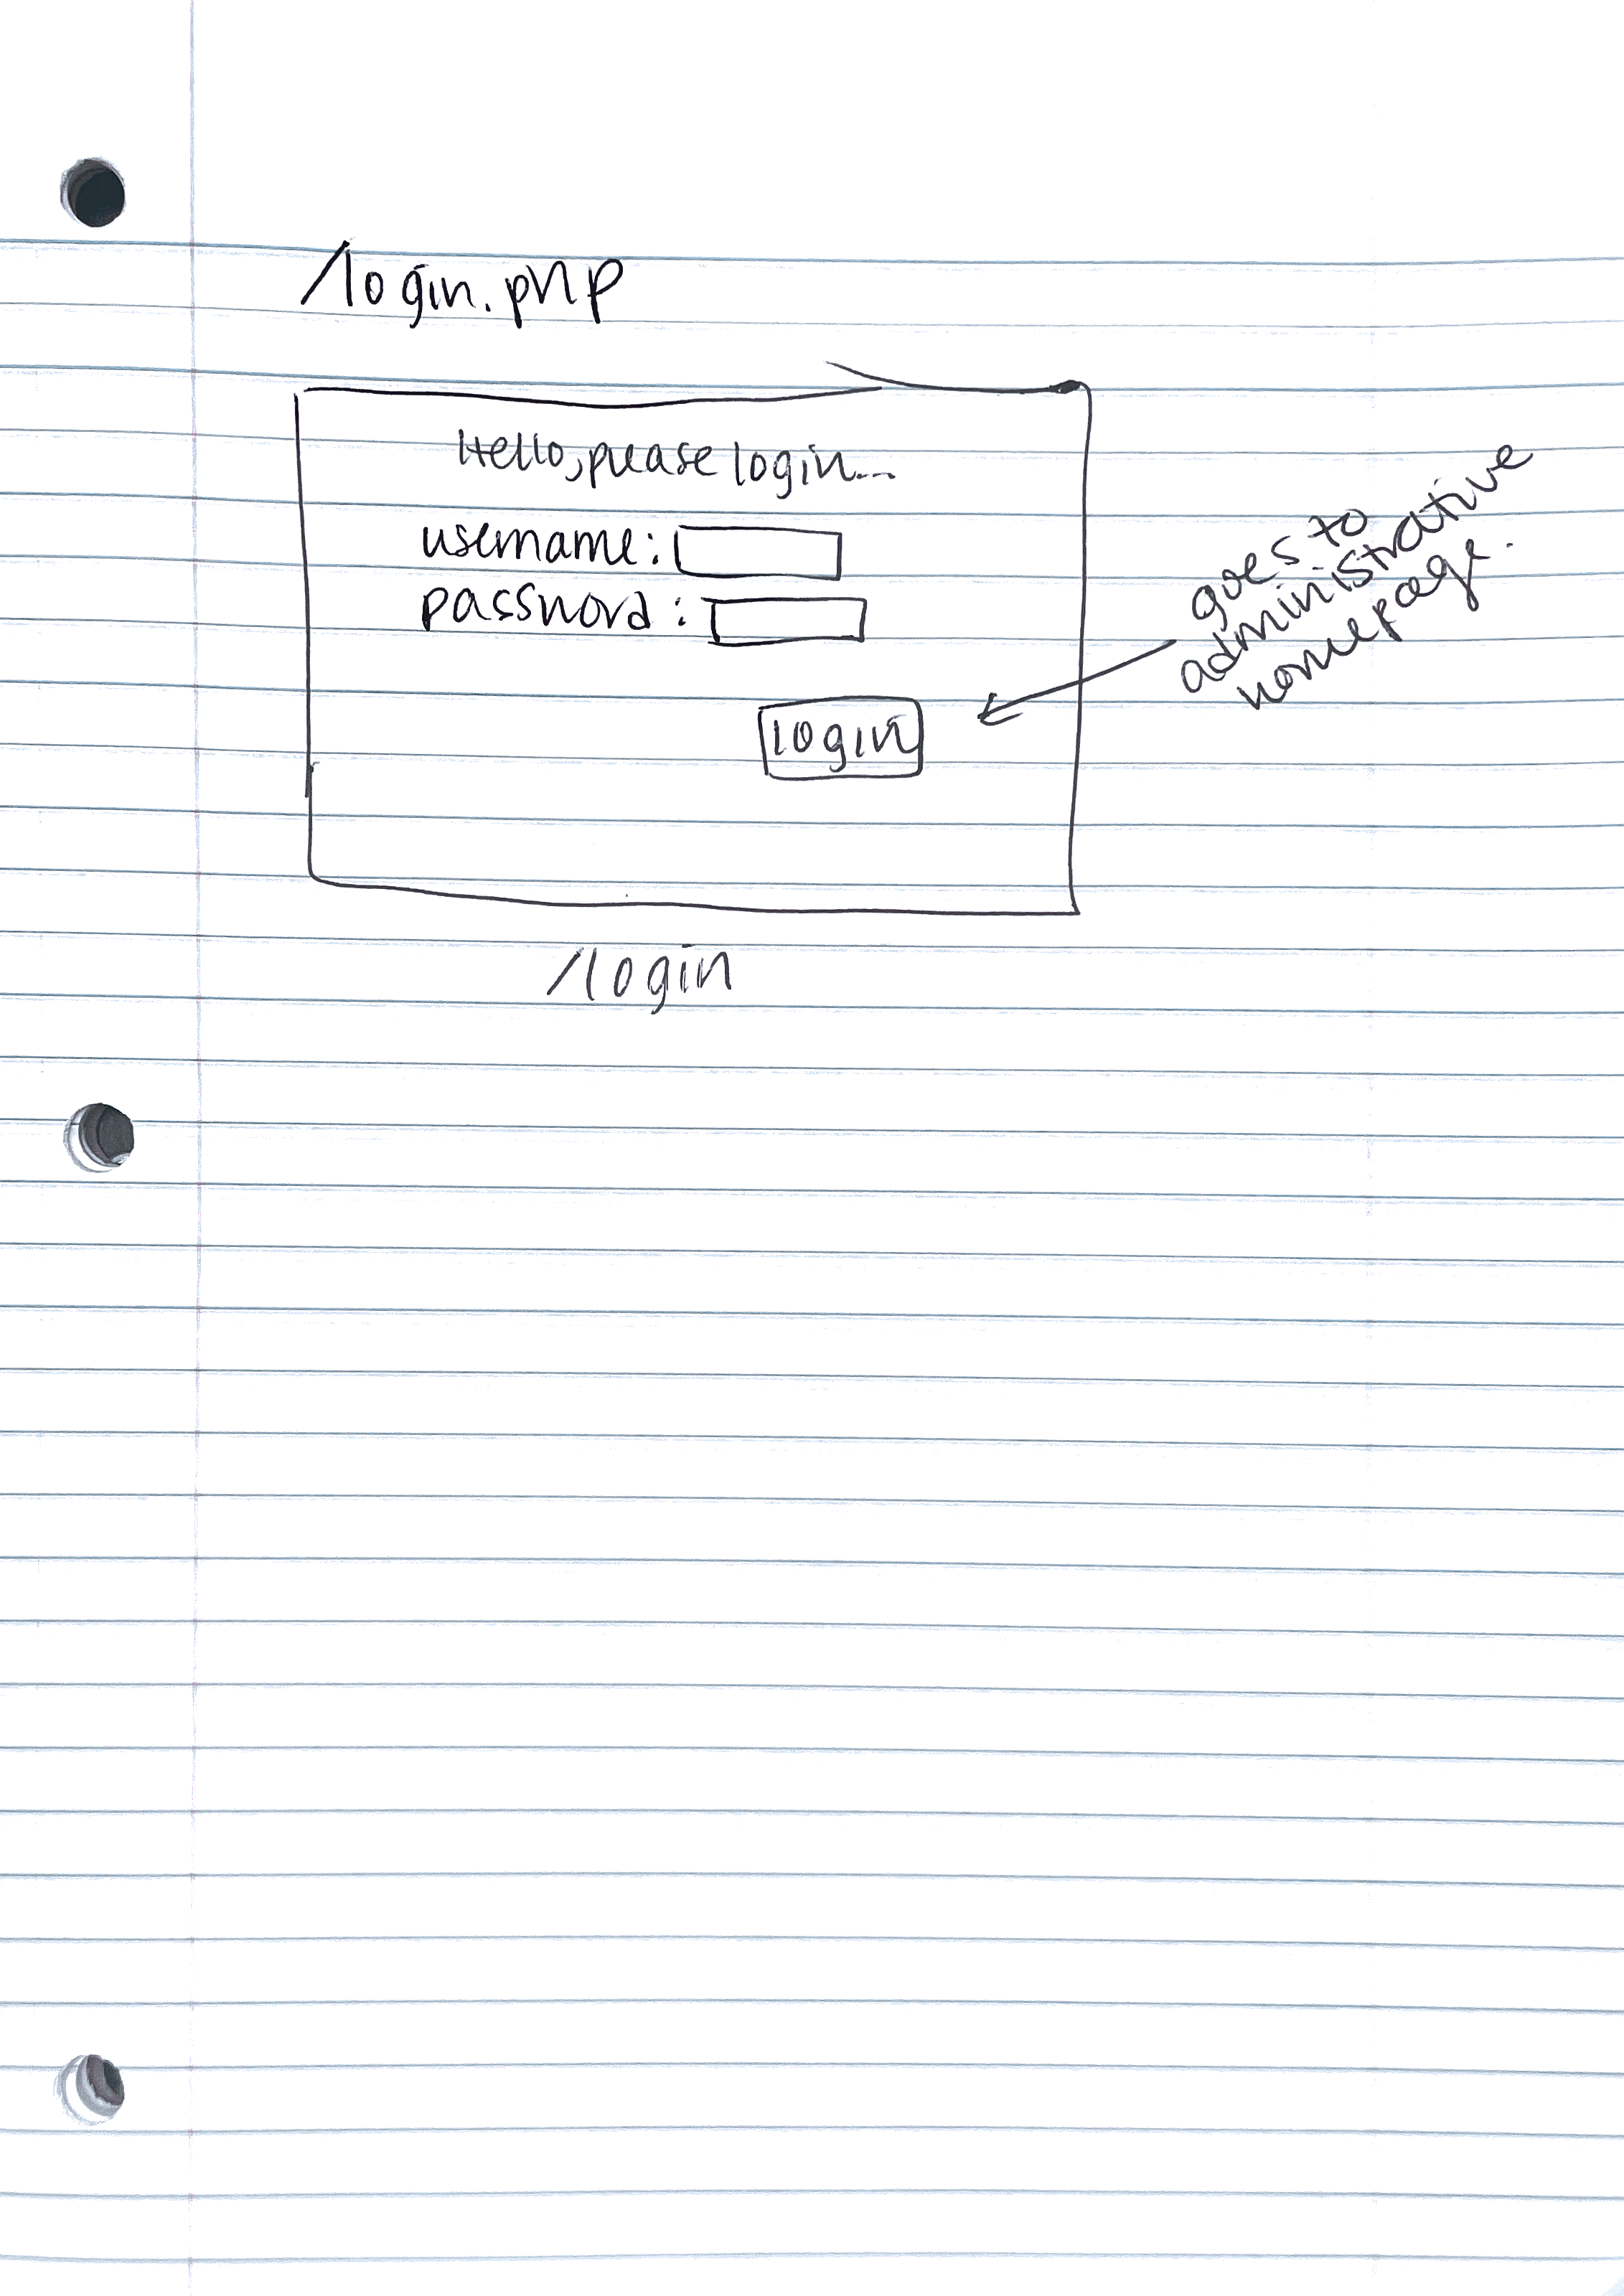 /login.php
Hello, please login...
username:
password:
login
goes to
administrative
home page.
/login